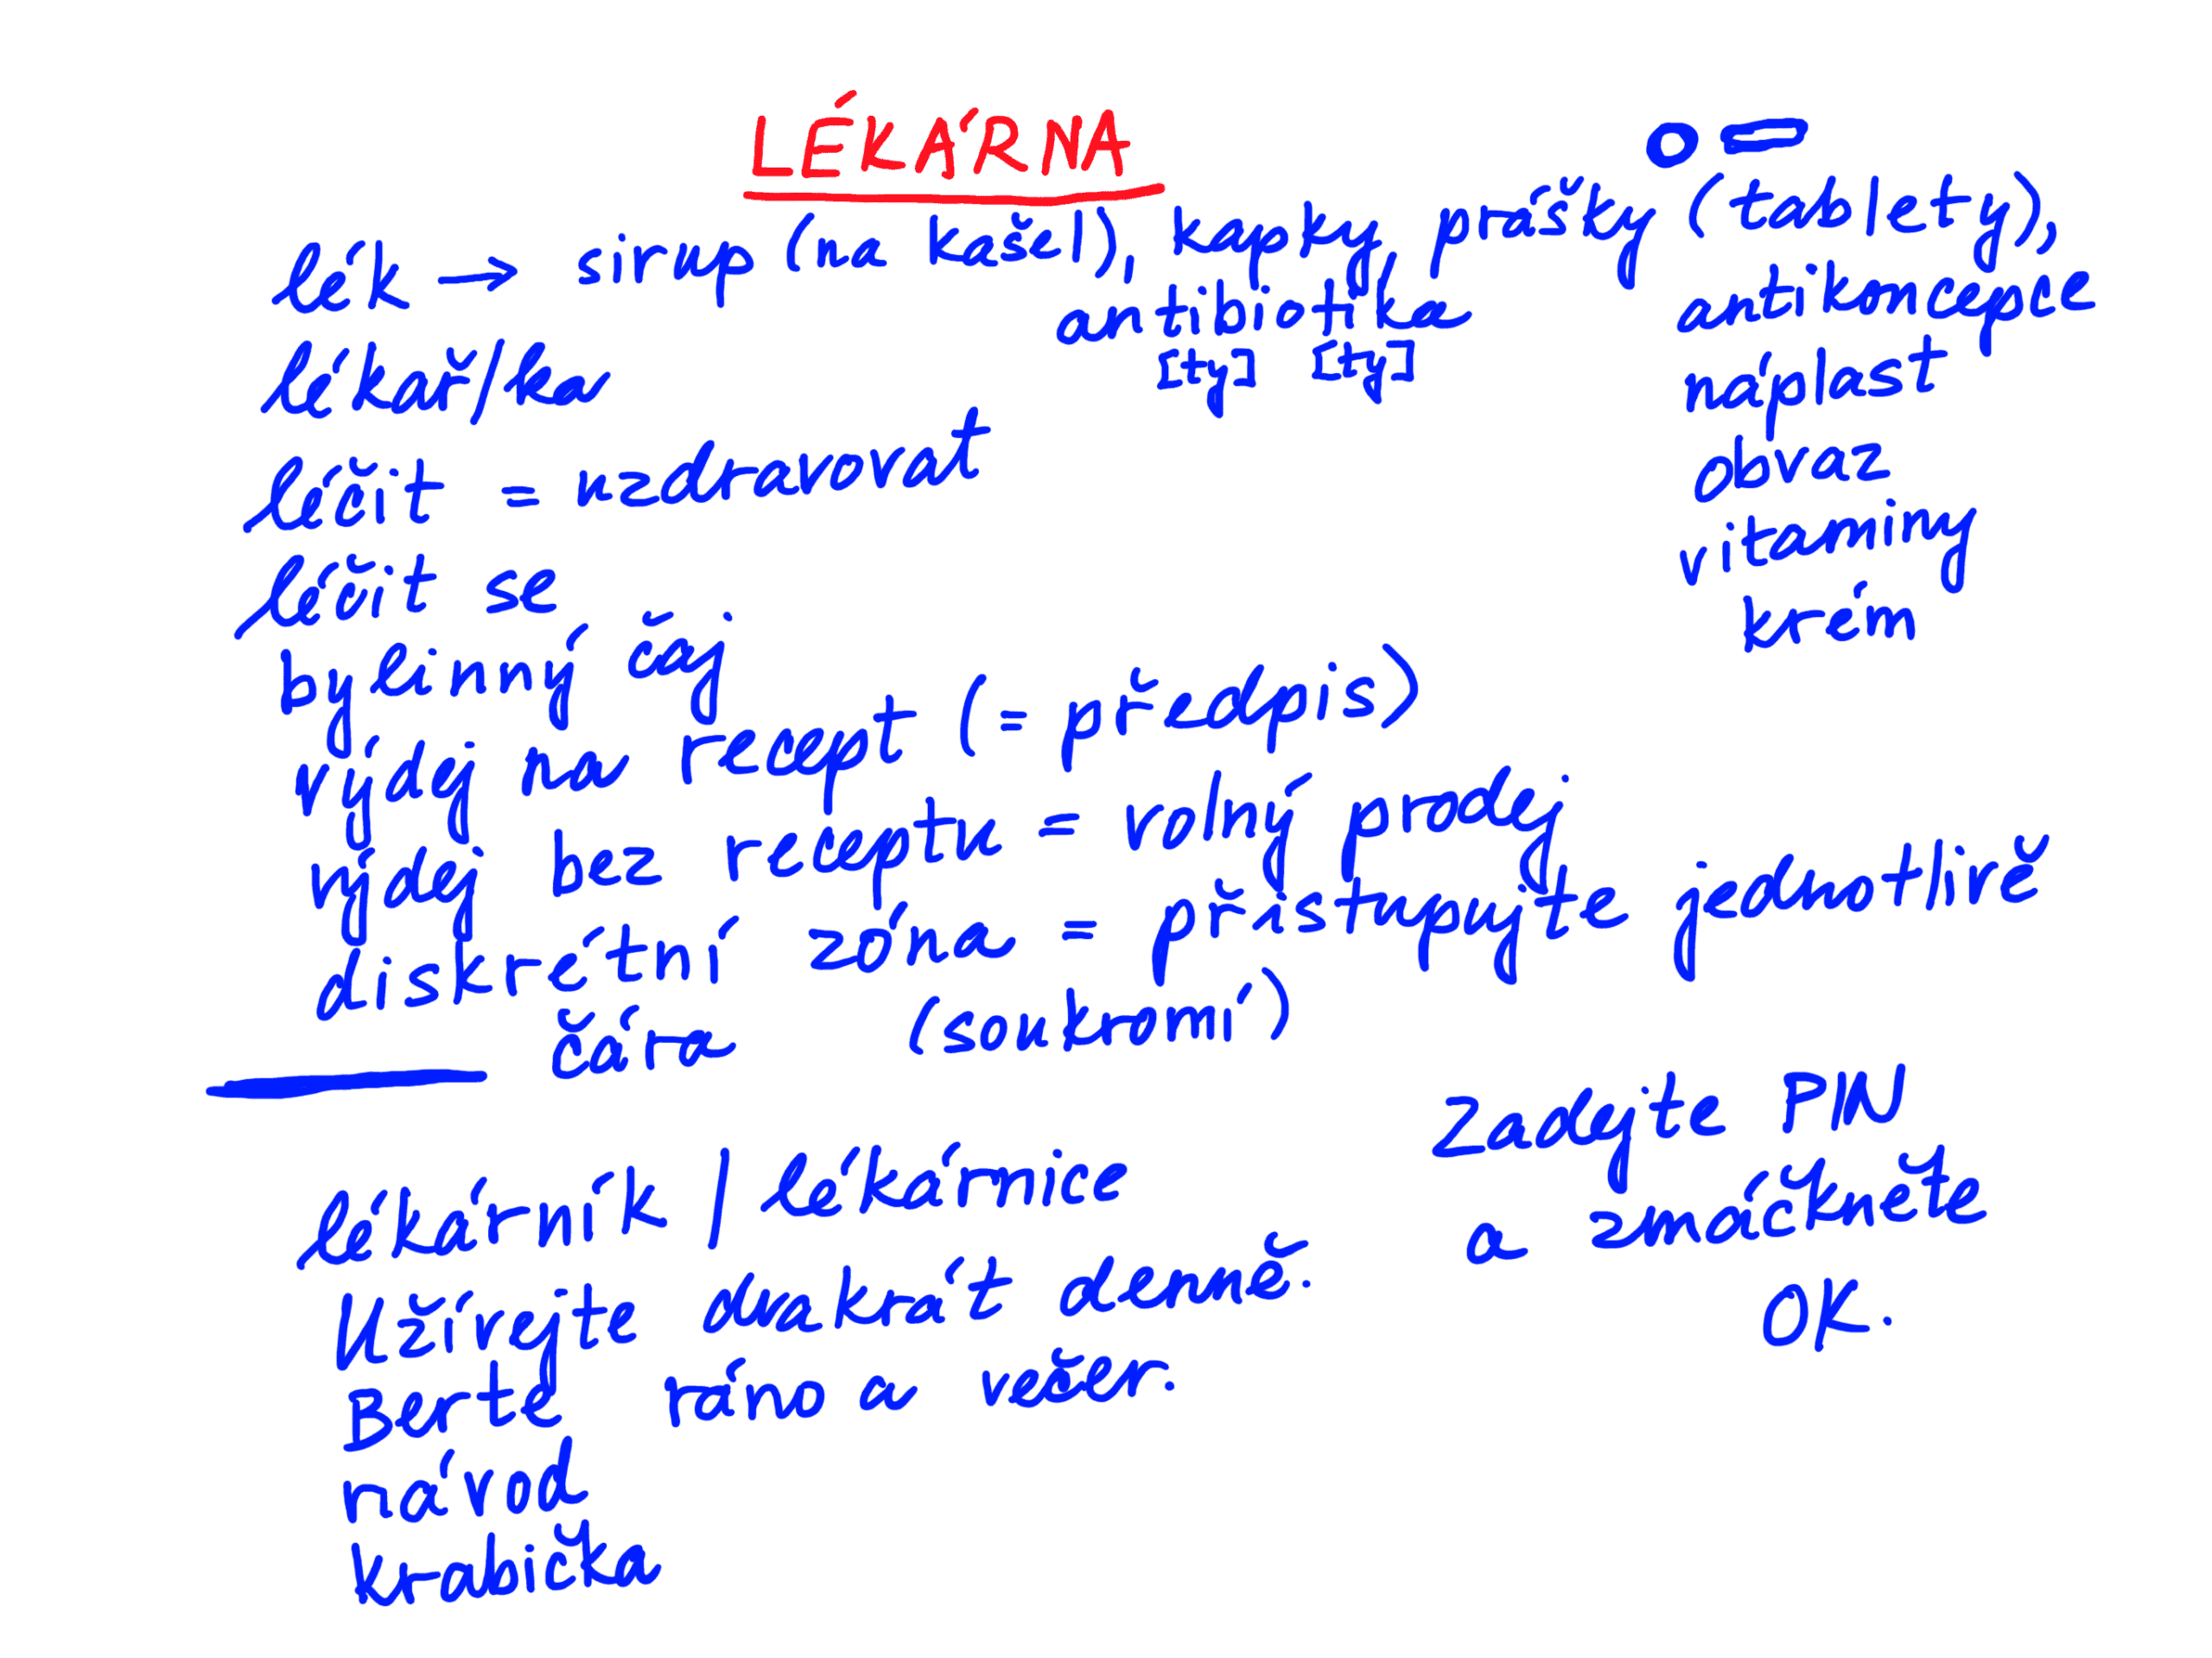 LÉKÁRNA
lék → sirup (na kašel), kapky, prášky (tablety),
antibiotika
[ty] [ty]
antikoncepce
náplast
obvaz
vitaminy
krém
lékař/ka
léčit = uzdravovat
léčit se
bylinný čaj
výdej na recept (= předpis)
výdej bez receptu = volný prodej
diskrétní zóna = přistupujte jednotlivě
čára (soukromí)
lékárník / lékárnice
Užívejte dvakrát denně.
Berte ráno a večer.
návod
krabička
Zadejte PIN
a zmáčkněte
OK.